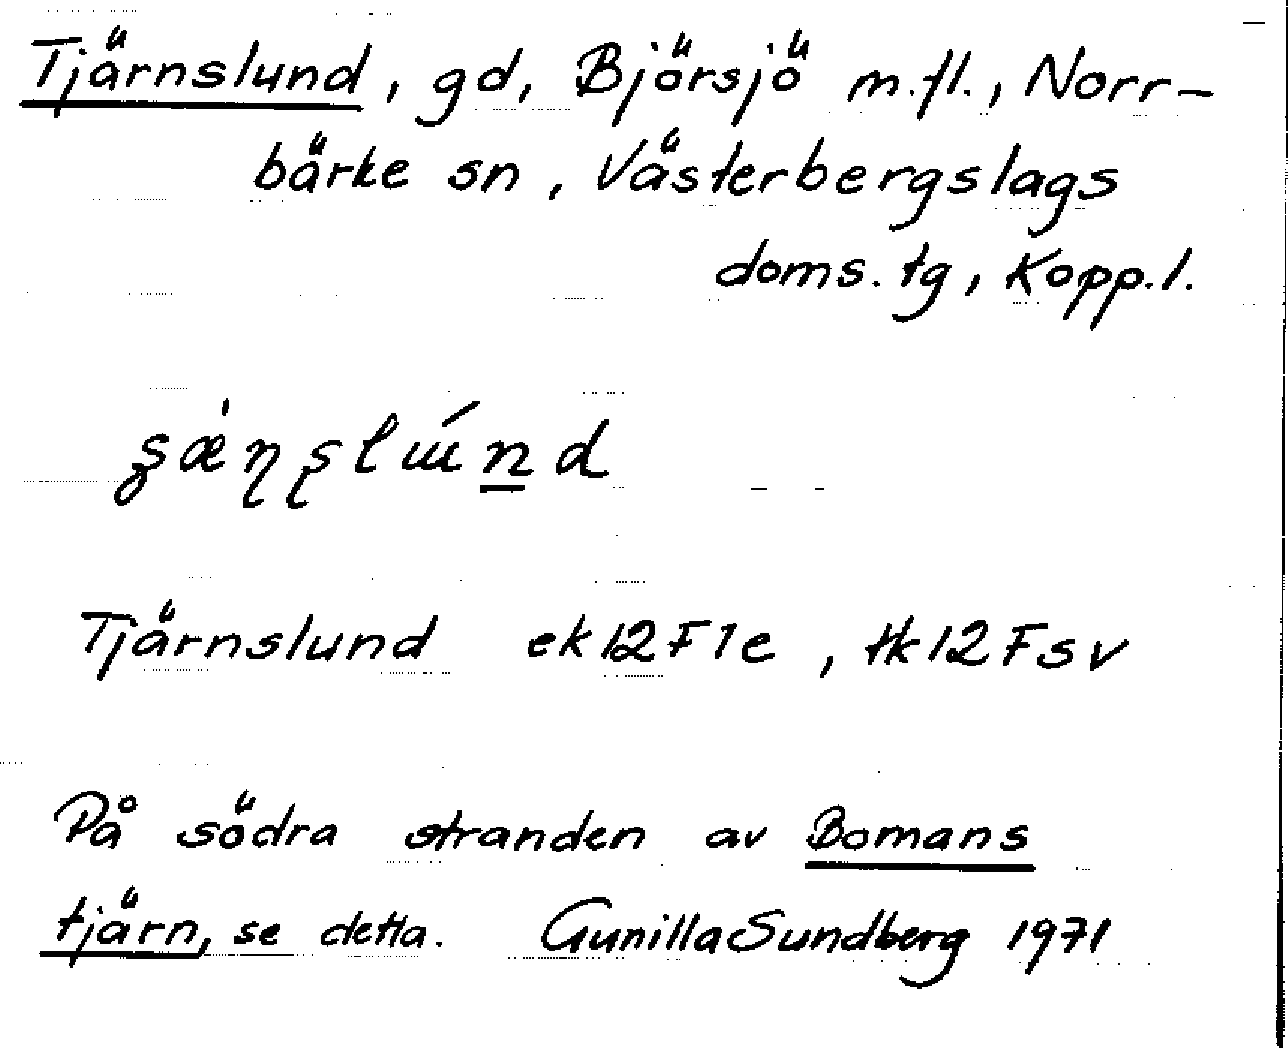 Tjärnslund, gd, Björsjö m.fl., Norr-
bärke sn, Västerbergslags
doms.tg, Kopp.l.
Tjärnslund ek12F1e, tk12Fsv
På södra stranden av Bomans
tjärn, se detta. Gunilla Sundberg 1971